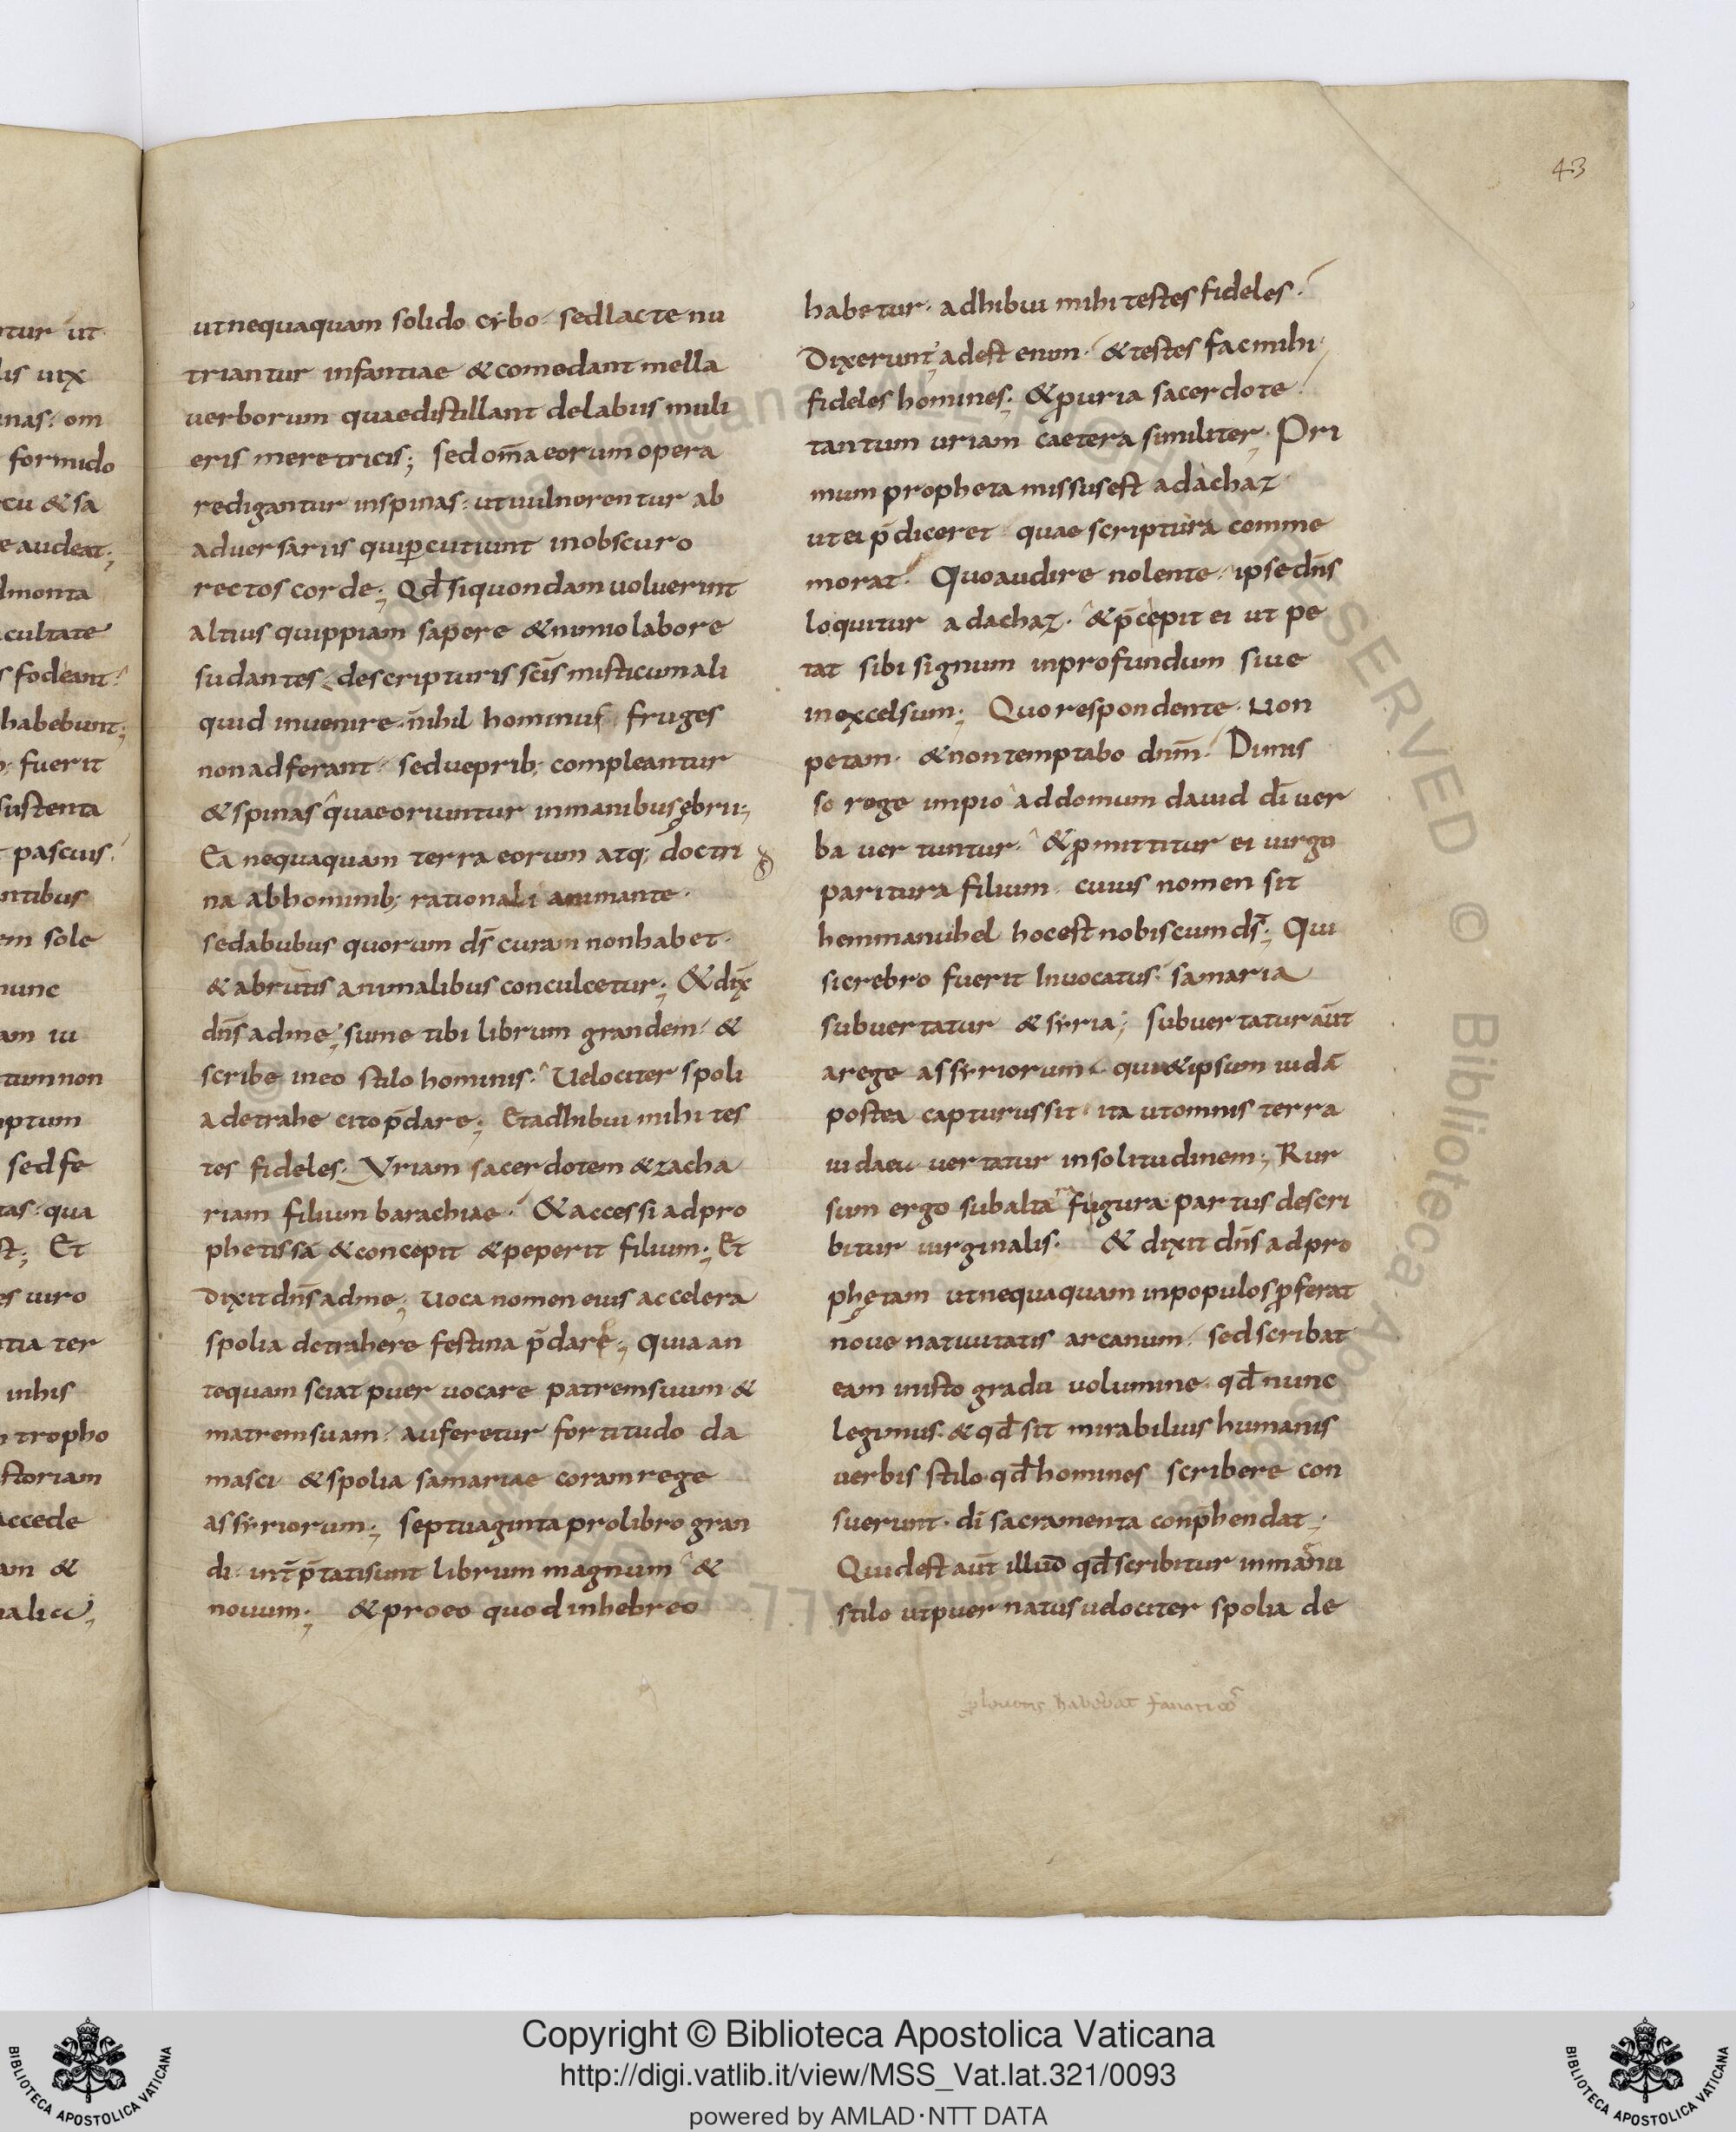 43
ut nequaquam solido cybo. sed lacte nu
triantur infantiae & comedant mella
verborum quae distillant de labiis muli
eris meretricis; sed om̄a eorum opera
redigantur in spinas. ut vulnerentur ab
adversariis qui ꝑcutiunt in obscuro
rectos corde; Qd̄ si quondam voluerint
altius quippiam sapere & nimio labore
sudantes. de scripturis sc̄is misticum ali
quid invenire. nihil hominis fruges
non adferant. sed veprib; compleantur
& spinas quae oriuntur in manibus ebrii;
Ea nequaquam terra eorum atq; doctri
na ab hominib; rationali animante.
sed a bubus quorum ds̄ curam non habet.
& a brutis animalibus conculcetur; & dix̄
dn̄s ad me; sume tibi librum grandem. &
scribe in eo stilo hominis. Velociter spoli
a detrahe cito p̄dare; Et adhibui mihi tes
tes fideles. Vriam sacerdotem & zacha
riam filium barachiae. & accessi ad pro
phetissā & concepit & peperit filium; Et
dixit dn̄s ad me; voca nomen eius accelera
spolia detrahere festina p̄dare; quia an
tequam sciat puer vocare patrem suum &
matrem suam. auferetur fortitudo da
masci & spolia samariae coram rege
assyriorum; septuaginta pro libro gran
di. int̄p̄tati sunt librum magnum &
novum; & pro eo quod in hebreo
habetur. adhibui mihi testes fideles.
Dixerunt; adest enim. & testes fac mihi.
fideles homines; & ꝑ uria sacerdote.
tantum uriam caetera similiter. Pri
mum propheta missus est ad achaz.
ut ei p̄diceret quae scriptura comme
morat. Quo audire nolente. ipse dn̄s
loquitur ad achaz. & p̄cepit ei ut pe
tat sibi signum in profundum sive
in excelsum; Quo respondente. Non
petam. & non temptabo dnm̄. Dimis
so rege impio ad domum david dī ver
ba vertuntur. & ꝓmittitur ei virgo
paritura filium. cuius nomen sit
hemmanuhel hoc est nobiscum ds̄; Qui
si crebro fuerit Invocatus. samaria
subvertatur & syria; subvertatur aūt
a rege assyriorum. qui & ipsum iudā
postea capturus sit. ita ut omnis terra
iudaeae vertatur in solitudinem; Rur
sum ergo sub alia figura partus descri
bitur virginalis. & dixit dn̄s ad pro
phętam ut nequaquam in populos ꝓferat
nove nativitatis arcanum. sed scribat
eam in isto gradu volumine. qd̄ nunc
legimus. & qd̄ sit mirabilius humanis
verbis stilo. qd̄ homines scribere con
suerunt. dī sacramenta conp̄hendat;
Quid est aūt illud qd̄ scribitur in manu
stilo ut puer natus velociter spolia de
Copyright © Biblioteca Apostolica Vaticana
http://digi.vatlib.it/view/MSS_Vat.lat.321/0093
powered by AMLAD·NTT DATA
BIBLIOTECA APOSTOLICA VATICANA
BIBLIOTECA APOSTOLICA VATICANA